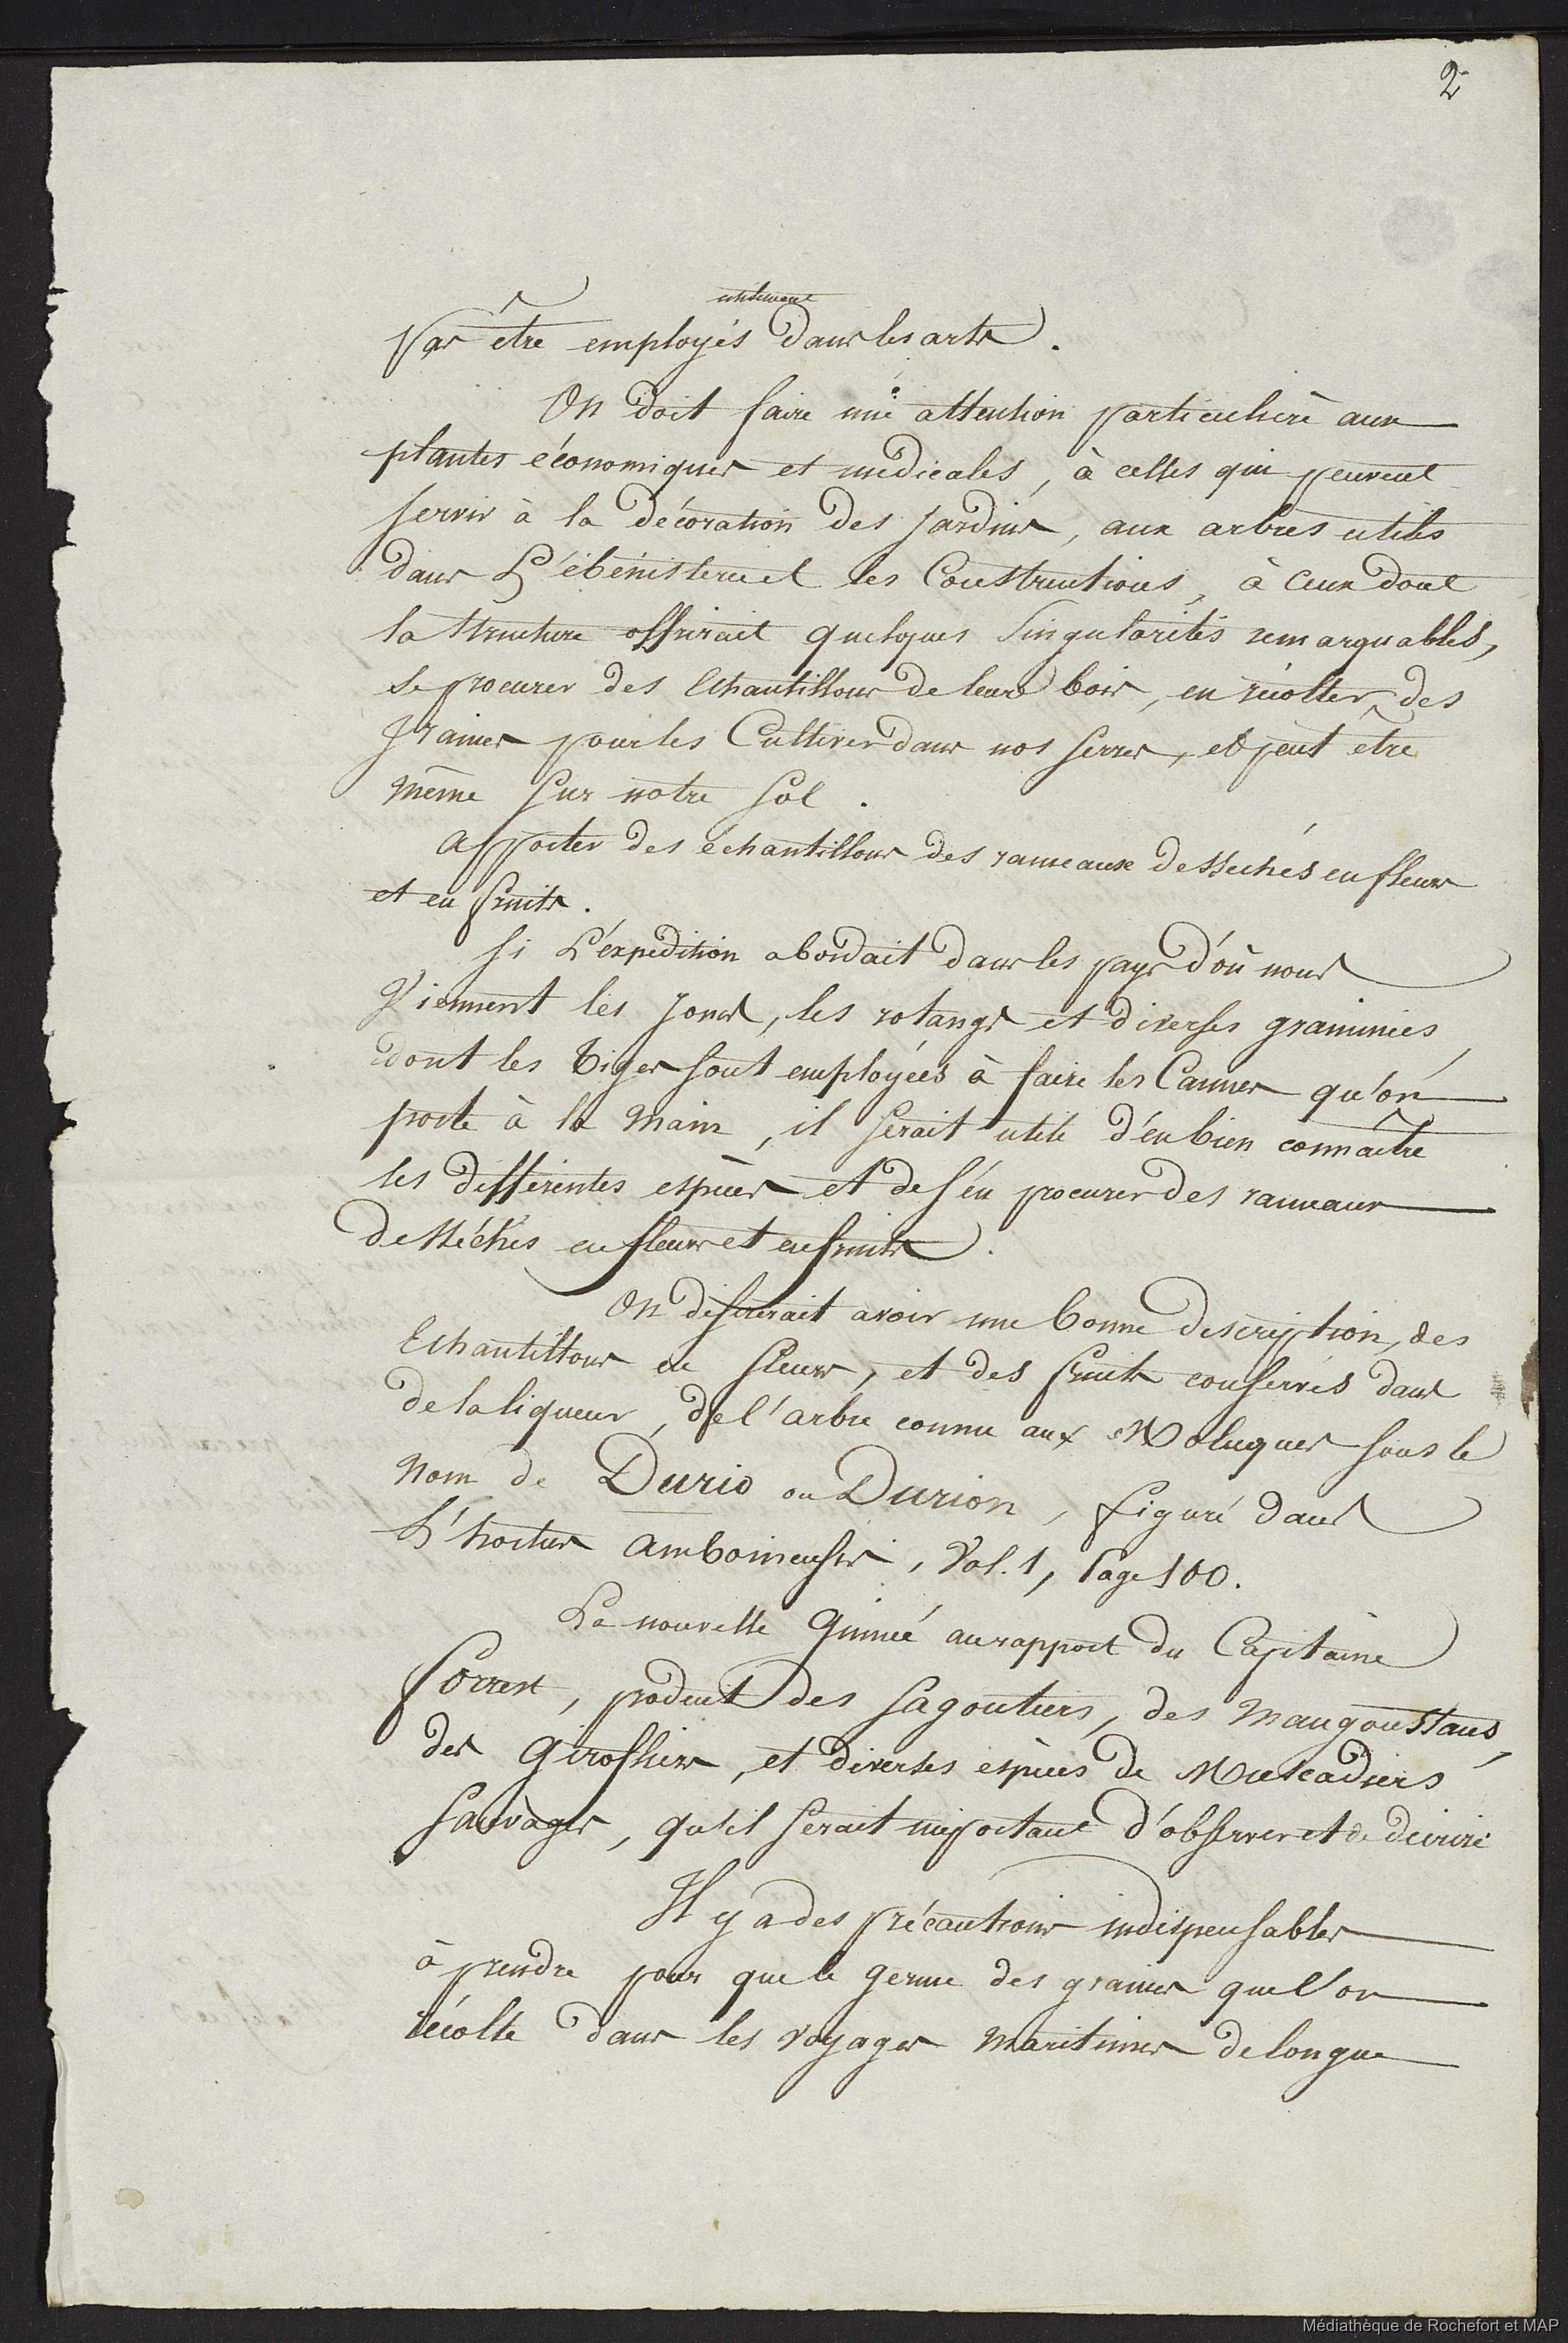 2
utilement
pas être employés dans les arts.
On doit faire une attention particulière aux
plantes économiques et médicales, à celles qui peuvent
servir à la décoration des Jardins, aux arbres utiles
dans L'ébénisterie et les Constructions, à ceux dont
la structure offrirait quelques Singularités remarquables,
se procurer des Echantillons de leurs bois, en récolter des
graines pour les Cultiver dans nos serres, et peut être
même sur notre sol.
apporter des échantillons des rameaux desséchés en fleurs
et en fruits.
Si L'éxpédition abordait dans les pays d'où nous
Viennent les Joncs, les rotangs et diverses graminées
dont les tiges sont employées à faire les Cannes qu'on
porte à la main, il serait utile d'en bien connaître
les différentes espèces et de s'en procurer des rameaux
desséchés en fleurs et en fruits.
On désirerait avoir une bonne description, des
Echantillons en fleurs, et des fruits conservés dans
de la liqueur, de l'arbre connu aux Moluques sous le
nom de Durio ou Durion, figuré dans
L'hortus amboinensis, Vol. 1, Page 100.
La nouvelle Guinée au rapport du Capitaine
Forrest, produit des sagoutiers, des Mangoustans,
des Girofliers, et diverses espèces de Muscadiers
sauvages, qu'il serait important d'observer et de décrire
Il y a des précautions indispensables
à prendre pour que le germe des graines que l'on
récolte dans les voyages maritimes de longue
Médiathèque de Rochefort et MAP